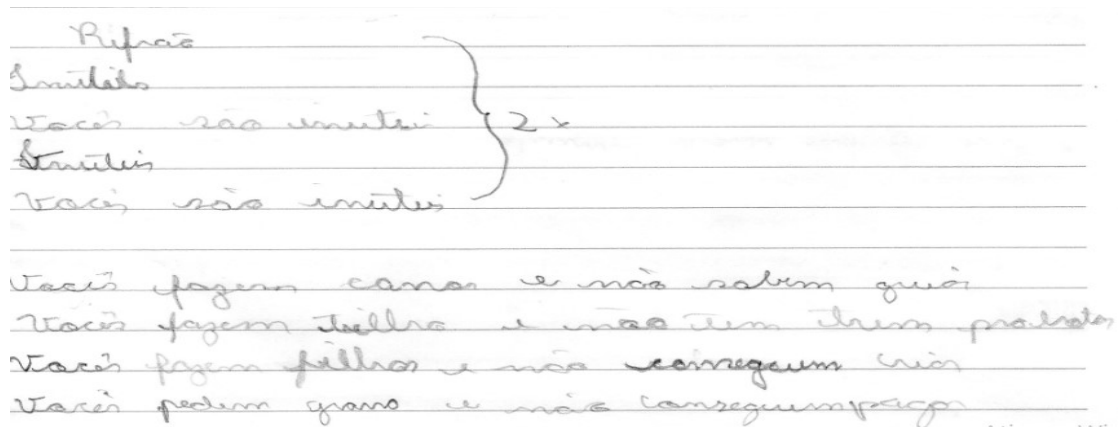 Refrão
Inútels
Vocês são inutei
Inúteis
Vocês são inúteis
2 x
Vocês fazem carros e não sabem guiar
Vocês fazem trilho e não tem trem pra botar
Vocês fazem filhos e não conseguem criar
Vocês pedem grana e não conseguem pagar